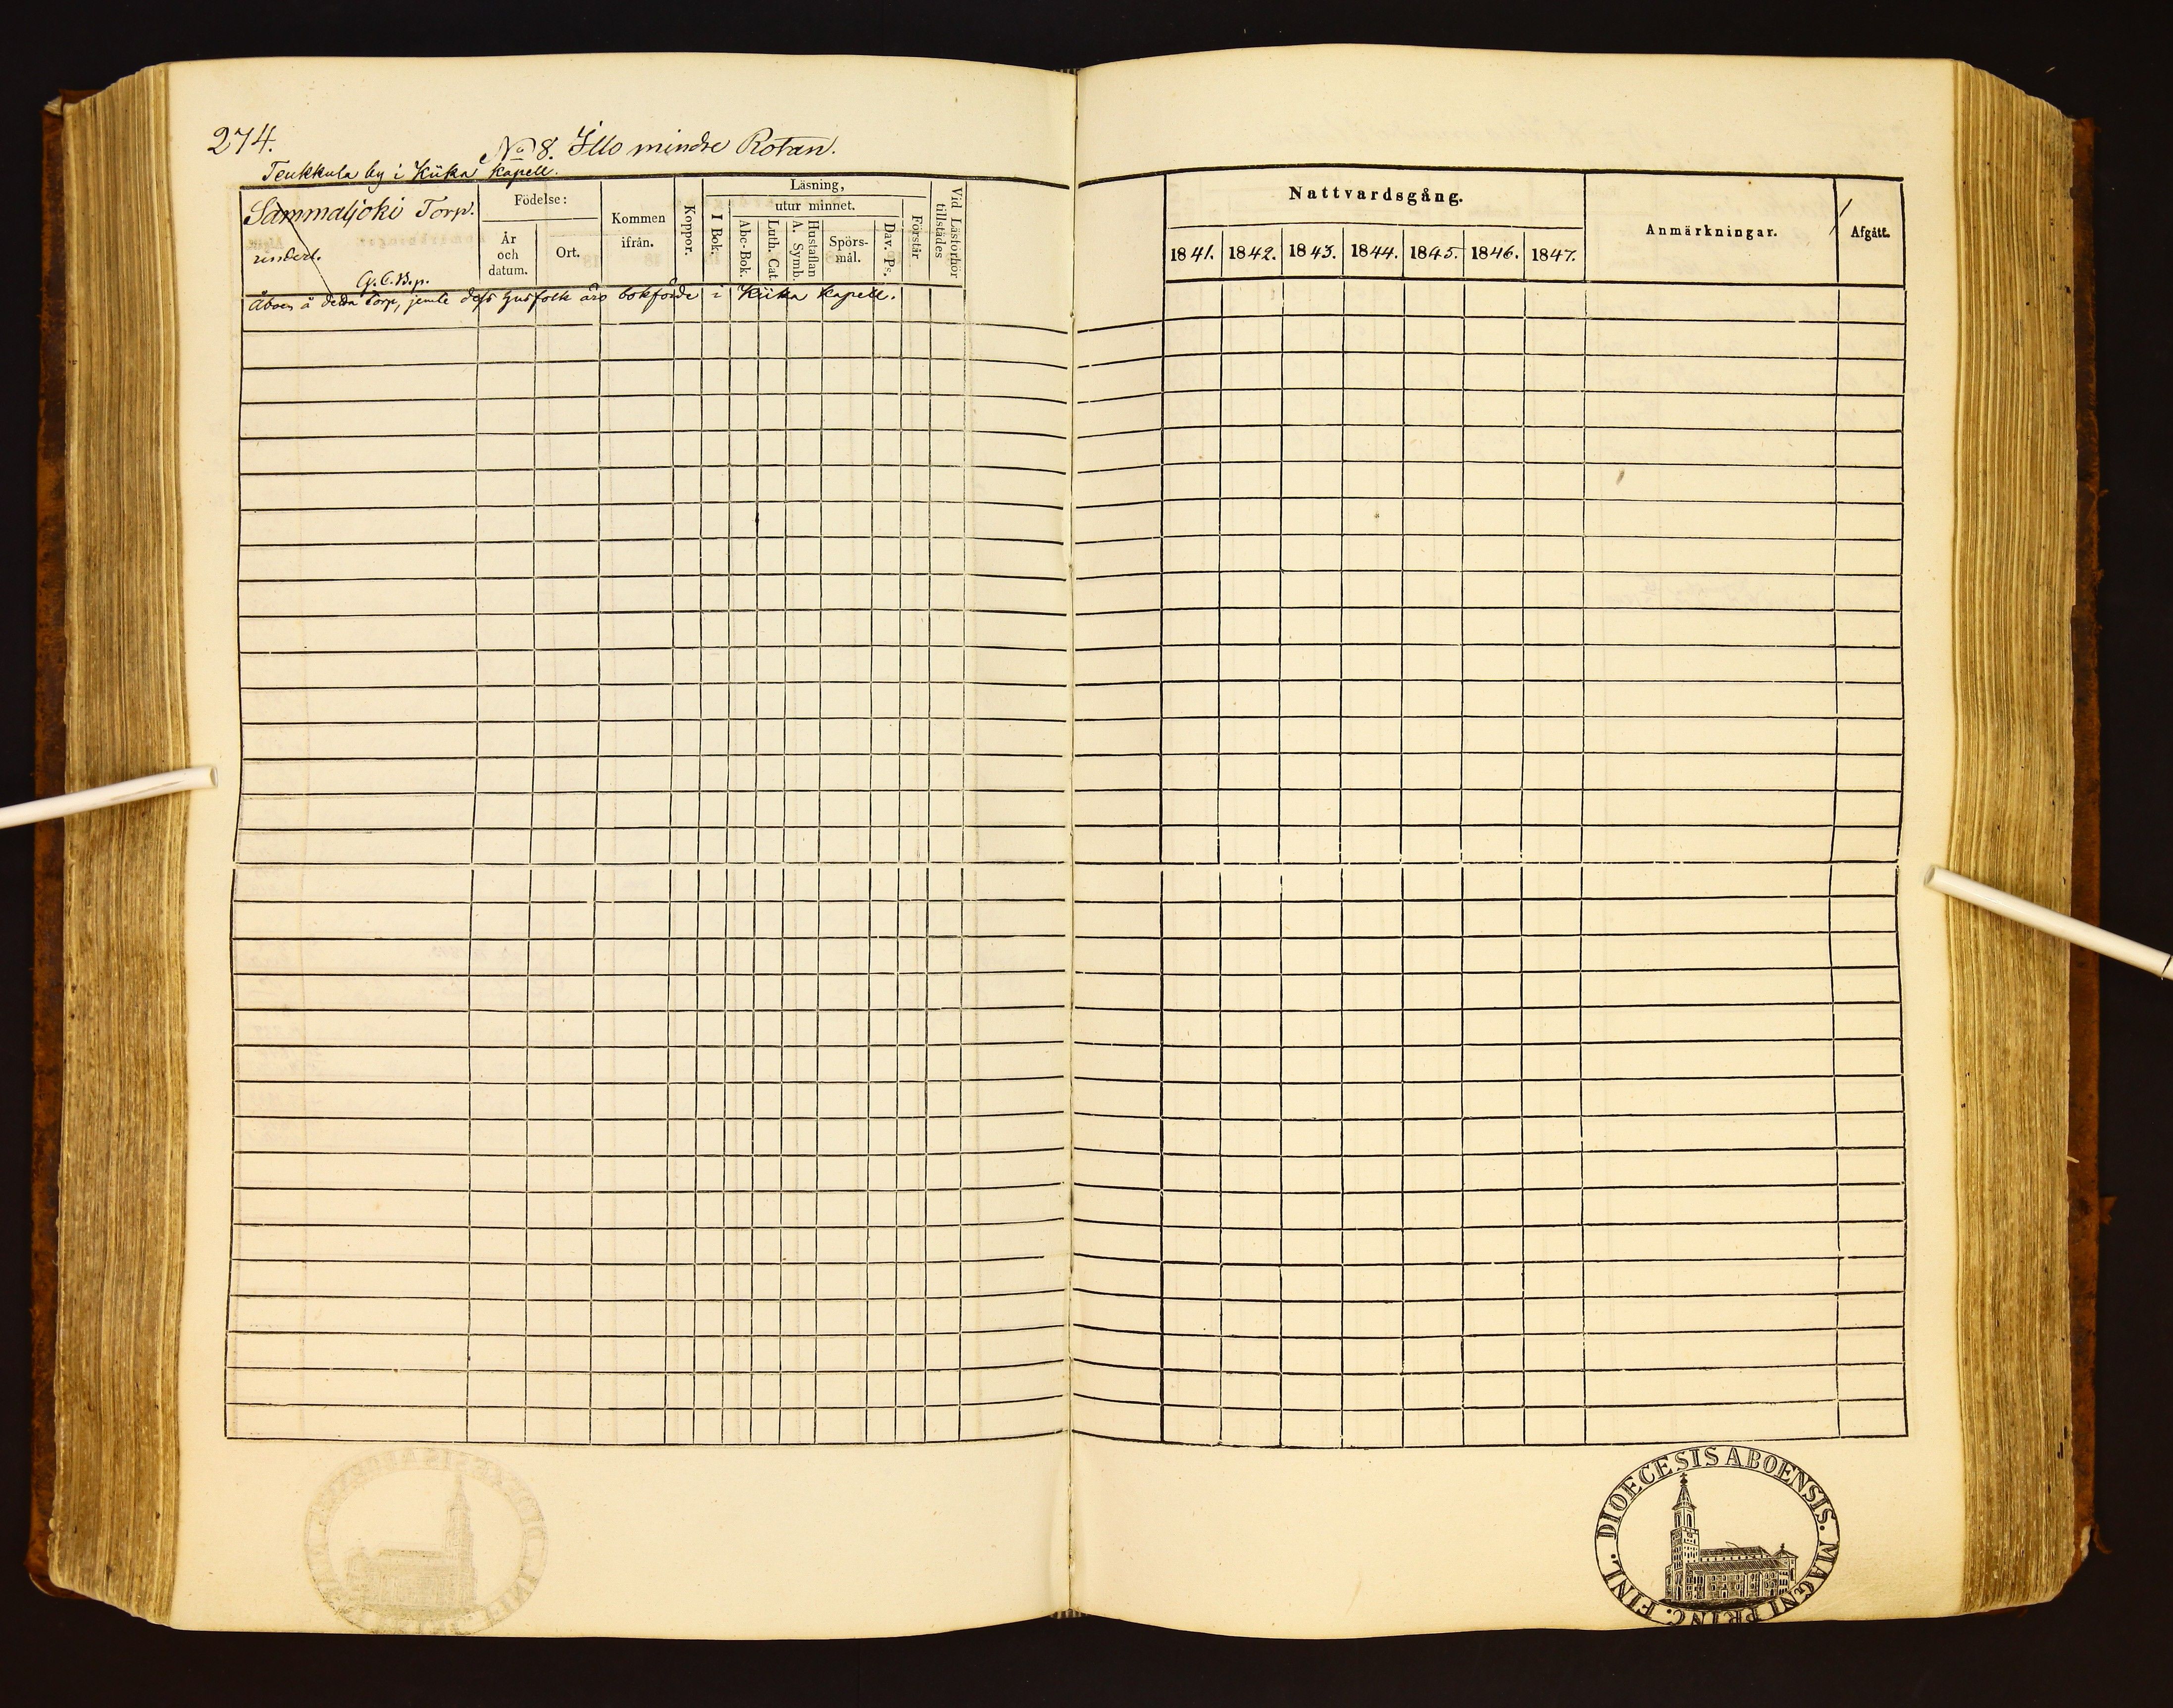 274.
No 8. Illo mindre Rotan.
Teukkula by i Kiika Kapell.
Sammaljoki Torp.
underl.
G. C. B. p.
Åboen å detta Torp, jemte dess husfolk äro bokförde i Kiika Kapell.
Födelse:
År
och
datum.
Ort.
Kommen
ifrån.
Koppor.
Läsning,
I Bok.
utur minnet.
Abc-Bok.
Luth. Cat.
Hustaflan
A. Symb.
Spörs-
mål.
Dav. Ps.
Förstår
Vid Läsförhör
tillstädes
Nattvardsgång.
1841. 1842. 1843. 1844. 1845. 1846. 1847.
Anmärkningar.
Afgått.
DIOECESIS ABOENSIS. MAGNI PRINC. FINL.